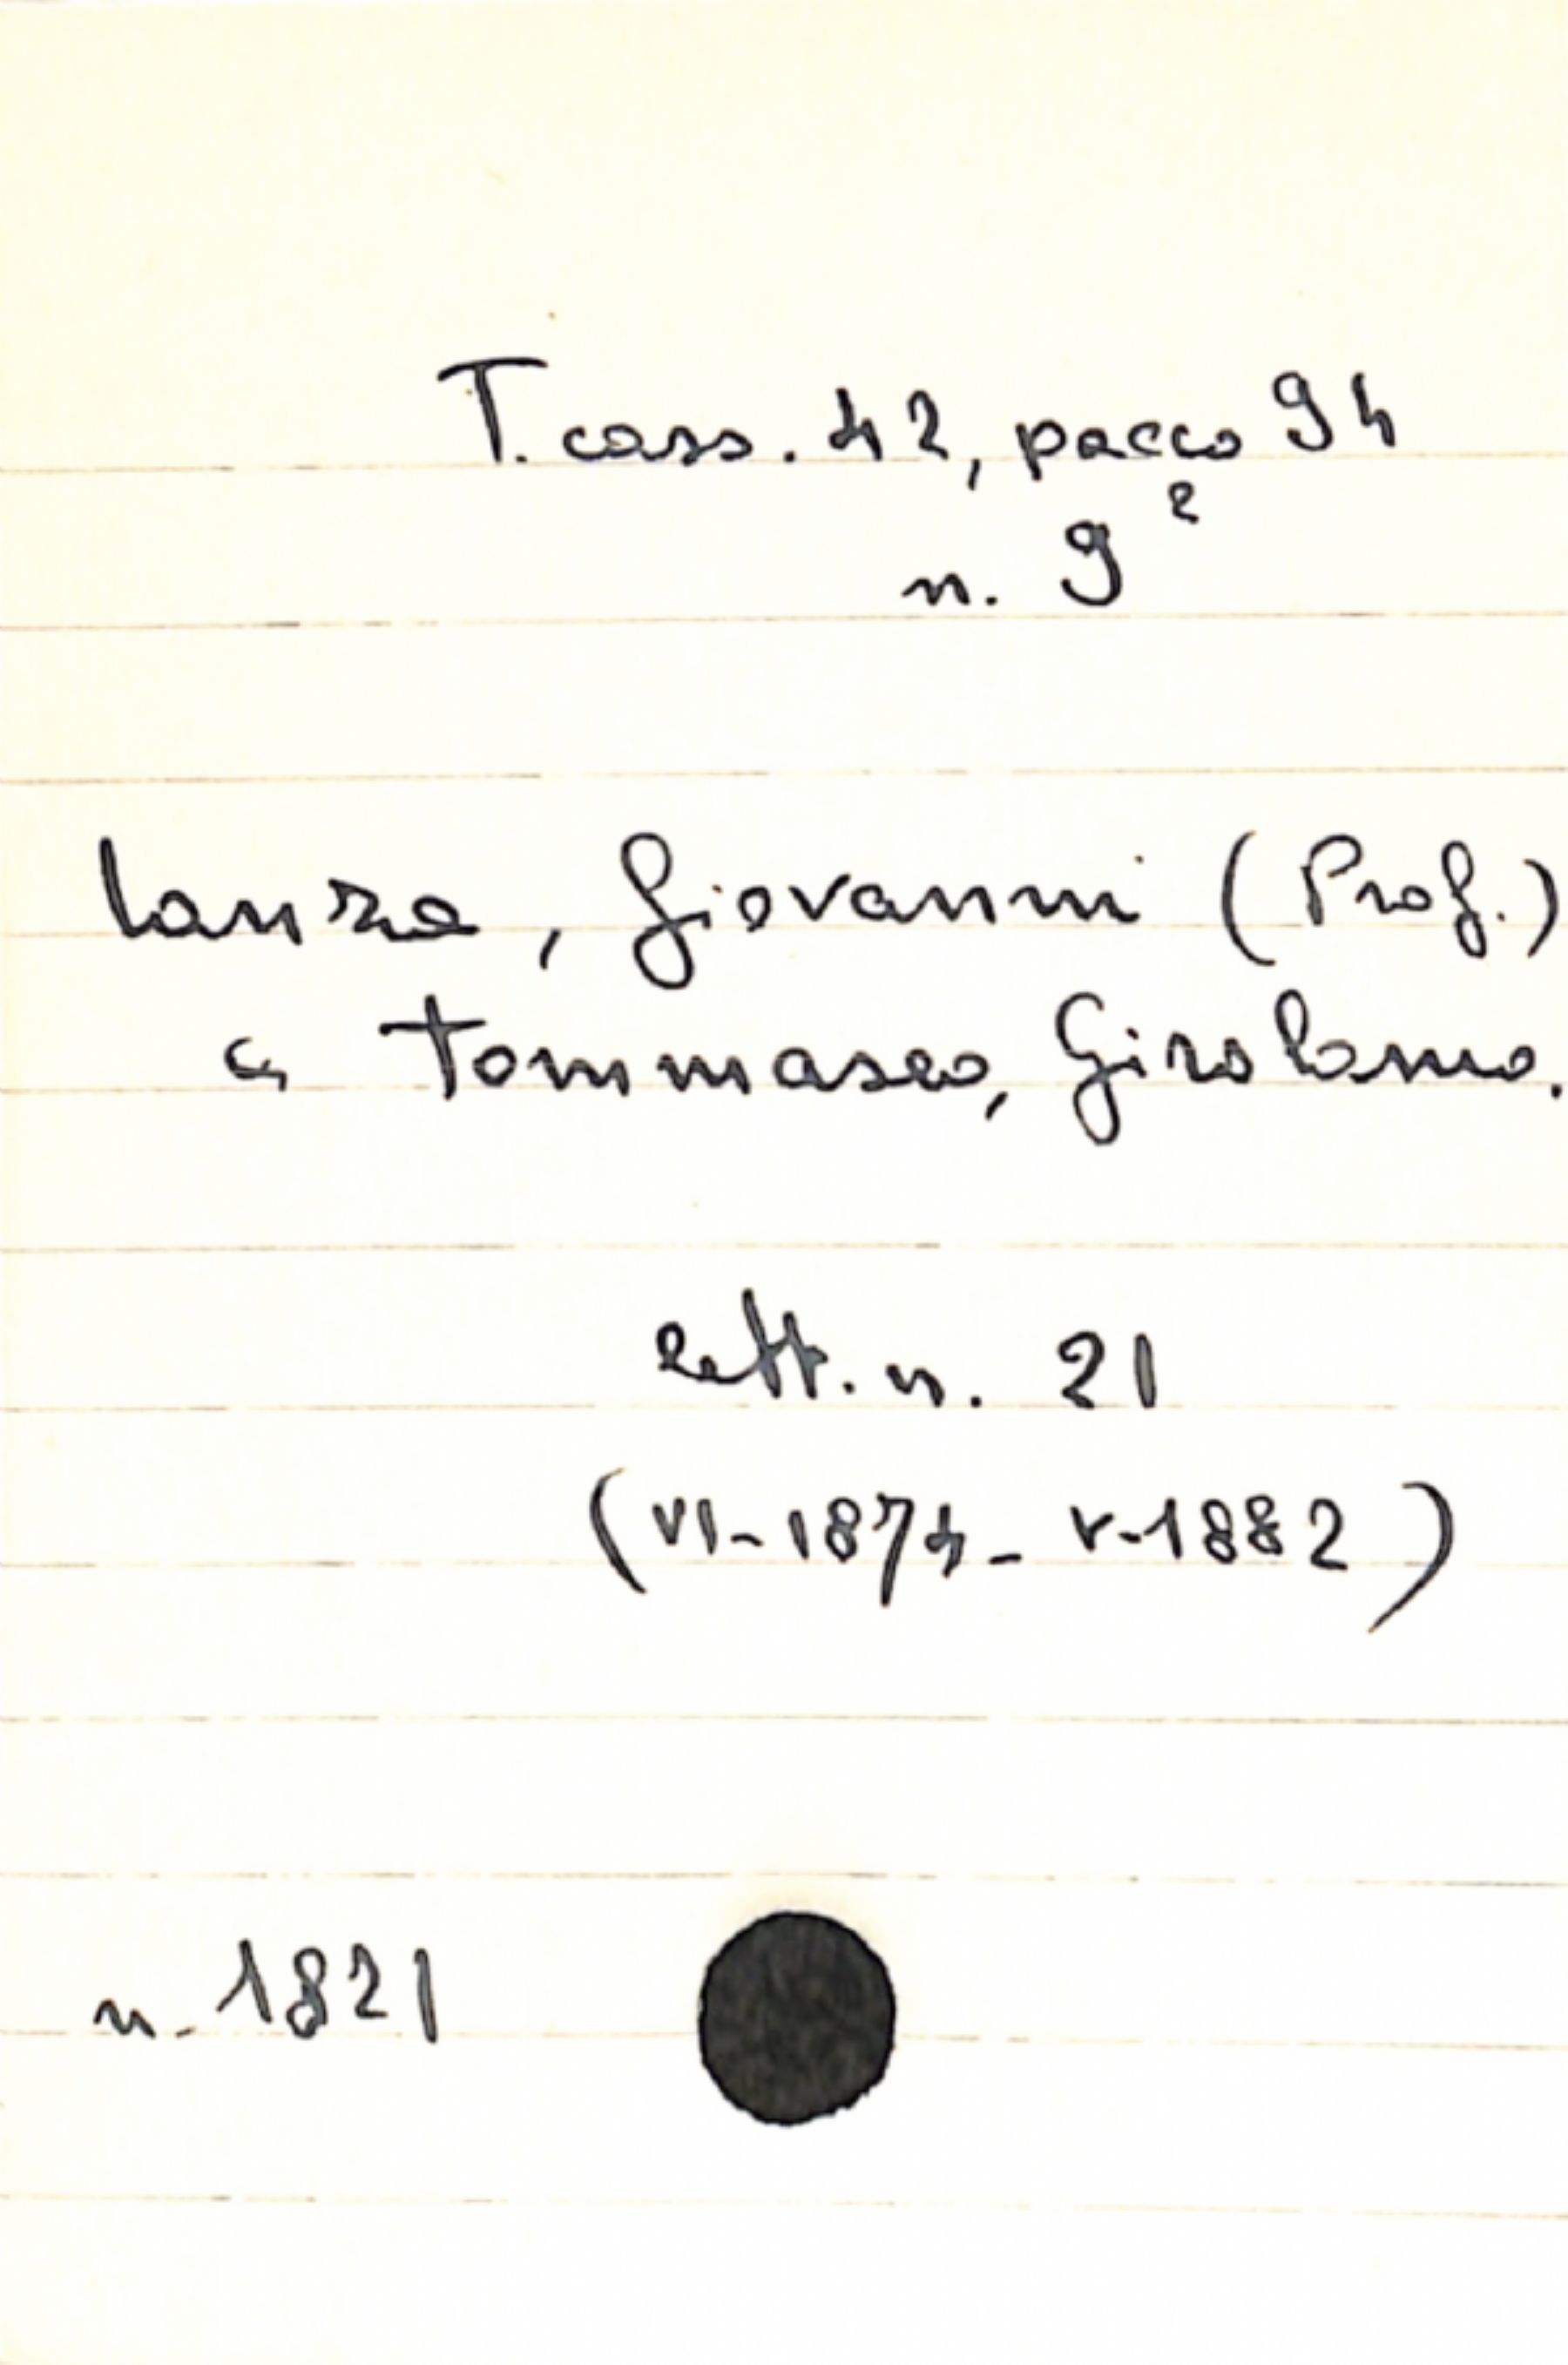 T. cass. 42, pacco 94
n. 9²
Lanza, Giovanni (Prof.)
a Tommaseo, Girolamo.
Lett. n. 21
(VI-1874 - V-1882)
n. 1821